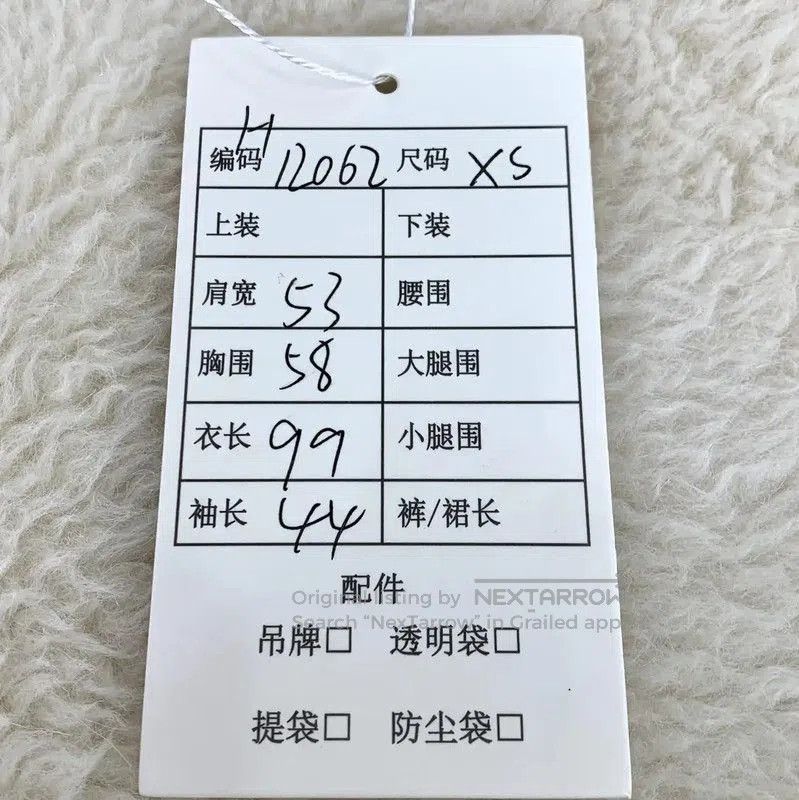 编码 H12062 尺码 XS
上装 下装
肩宽 53 腰围
胸围 58 大腿围
衣长 99 小腿围
袖长 44 裤/裙长
配件
Original listing by NEXTARROW
Search "NexTarrow" in Grailed app
吊牌□ 透明袋□
提袋□ 防尘袋□